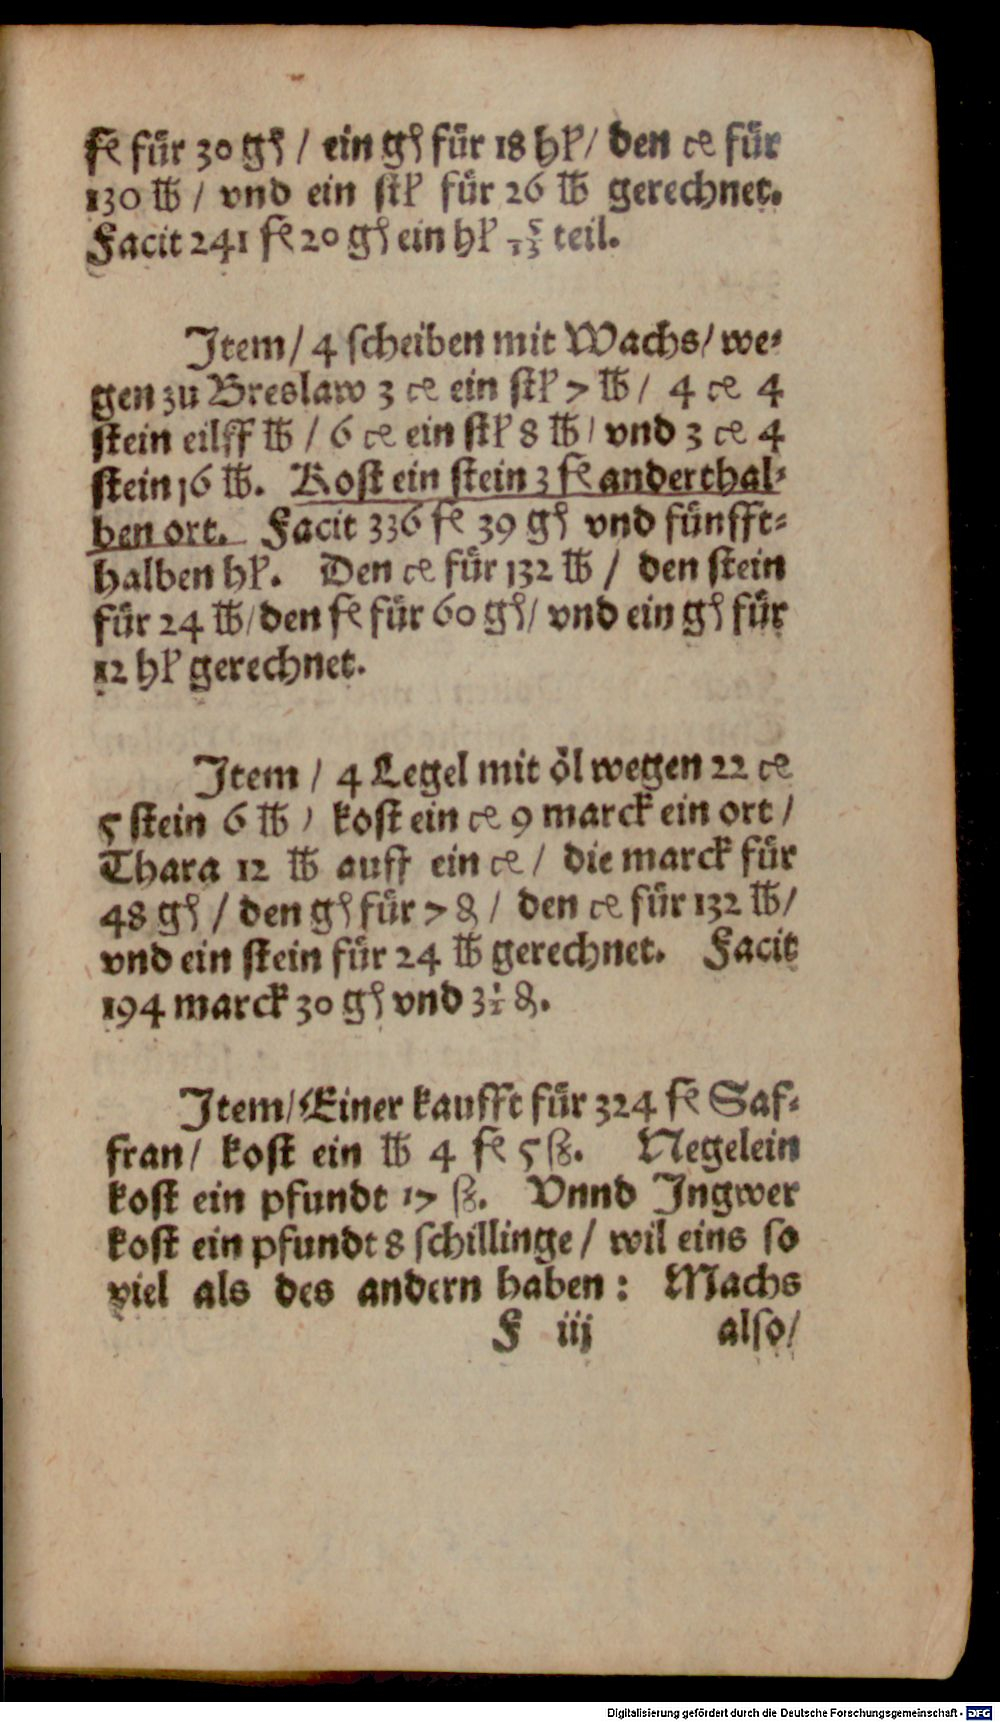 fl für 30 gß / ein gß für 18 hl / den ct für
130 ℔ / vnd ein stl für 26 ℔ gerechnet.
Facit 241 fl 20 gß ein hl 5/13 teil.
Item / 4 scheiben mit Wachs / we⸗
gen zu Breslaw 3 ct ein stl 7 ℔ / 4 ct 4
stein eilff ℔ / 6 ct ein stl 8 ℔ / vnd 3 ct 4
stein 16 ℔. Kost ein stein 3 fl anderthal⸗
ben ort. Facit 336 fl 39 gß vnd fünfft⸗
halben hl. Den ct für 132 ℔ / den stein
für 24 ℔ / den fl für 60 gß / vnd ein gß für
12 hl gerechnet.
Item / 4 Legel mit öl wegen 22 ct
5 stein 6 ℔ / kost ein ct 9 marck ein ort /
Thara 12 ℔ auff ein ct / die marck für
48 gß / den gß für 7 ₰ / den ct für 132 ℔ /
vnd ein stein für 24 ℔ gerechnet. Facit
194 marck 30 gß vnd 3½ ₰.
Item / Einer kaufft für 324 fl Saf⸗
fran / kost ein ℔ 4 fl 5 ß. Negelein
kost ein pfundt 17 ß. Vnnd Ingwer
kost ein pfundt 8 schillinge / wil eins so
viel als des andern haben : Machs
F iij also /
Digitalisierung gefördert durch die Deutsche Forschungsgemeinschaft - DFG